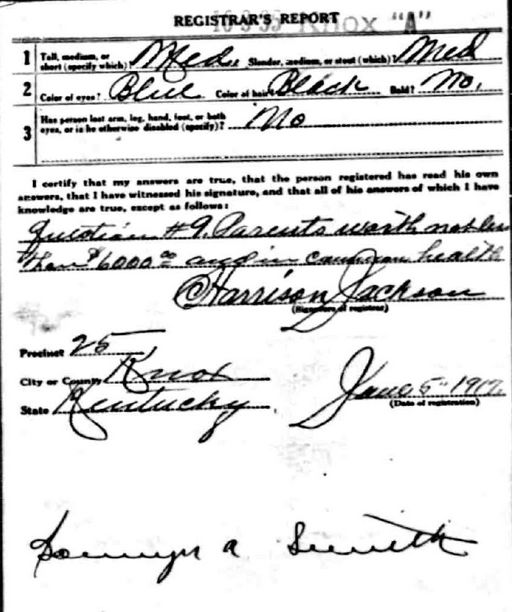 REGISTRAR'S REPORT
16-3-33 Knox "A"
1 Tall, medium, or short (specify which)? Med. Slender, medium, or stout (which)? Med
2 Color of eyes? Blue Color of hair? Black Bald? No.
3 Has person lost arm, leg, hand, foot, or both eyes, or is he otherwise disabled (specify)? No
I certify that my answers are true, that the person registered has read his own
answers, that I have witnessed his signature, and that all of his answers of which I have
knowledge are true, except as follows:
Question #9. Parents worth not less
than $6000.00 and in common health
Harrison Jackson
(Signature of registrar)
Precinct 25
City or County Knox
State Kentucky
June 5 1917
(Date of registration)
A Smith